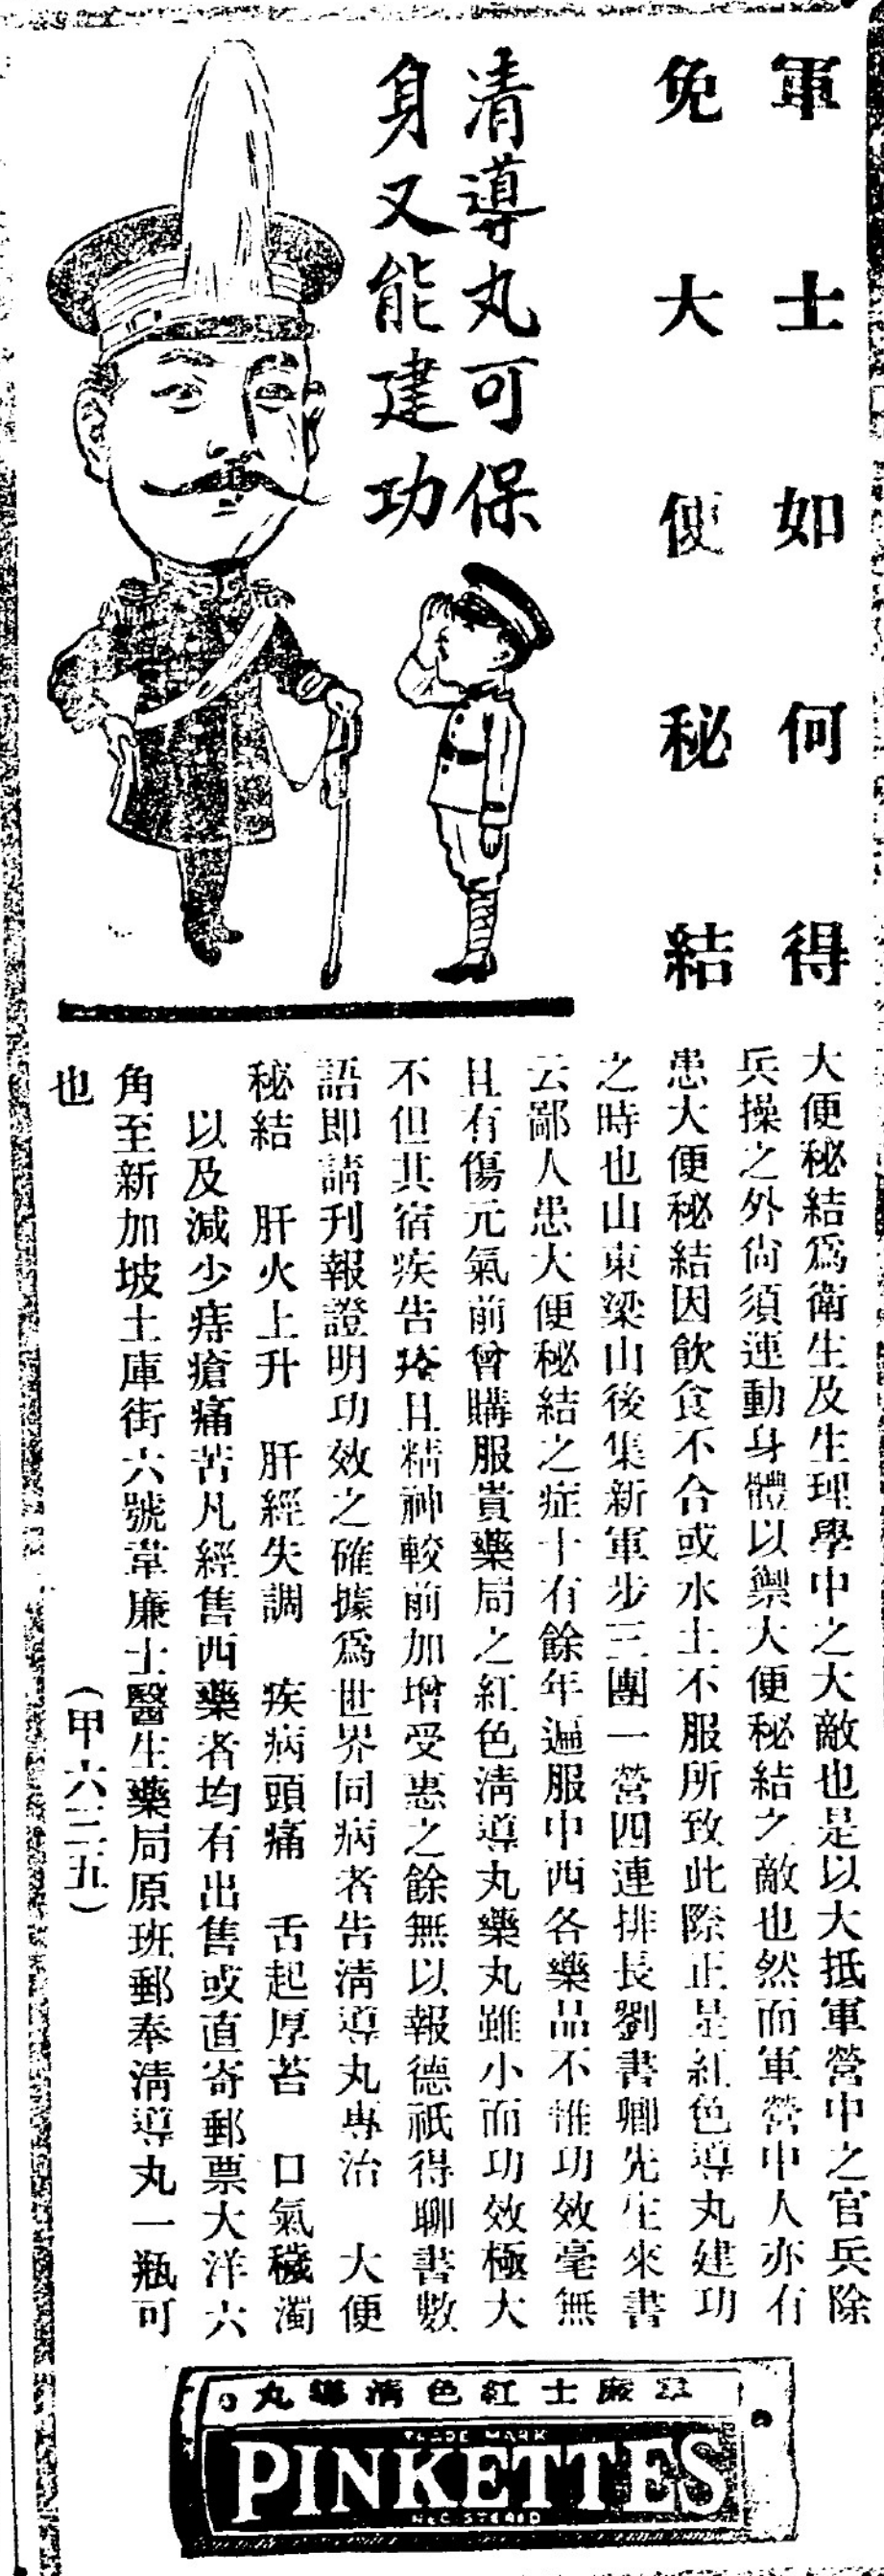 軍士如何得
免大便秘結
清導丸可保
身又能建功
大便秘結爲衛生及生理學中之大敵也是以大抵軍營中之官兵除
兵操之外尙須運動身體以禦大便秘結之敵也然而軍營中人亦有
患大便秘結因飲食不合或水土不服所致此際正是紅色導丸建功
之時也山東梁山後集新軍步三團一營四連排長劉書卿先生來書
云鄙人患大便秘結之症十有餘年遍服中西各藥品不惟功效毫無
且有傷元氣前曾購服貴藥局之紅色清導丸藥丸雖小而功效極大
不但其宿疾告痊且精神較前加增受惠之餘無以報德祇得聊書數
語即請刊報證明功效之確據爲世界同病者告清導丸專治 大便
秘結 肝火上升 肝經失調 疾病頭痛 舌起厚苔 口氣穢濁
以及減少痔瘡痛苦凡經售西藥者均有出售或直寄郵票大洋六
角至新加坡土庫街六號韋廉士醫生藥局原班郵奉清導丸一瓶可
也
(甲六三五)
韋廉士紅色清導丸
TRADE MARK
PINKETTES
REGISTERED